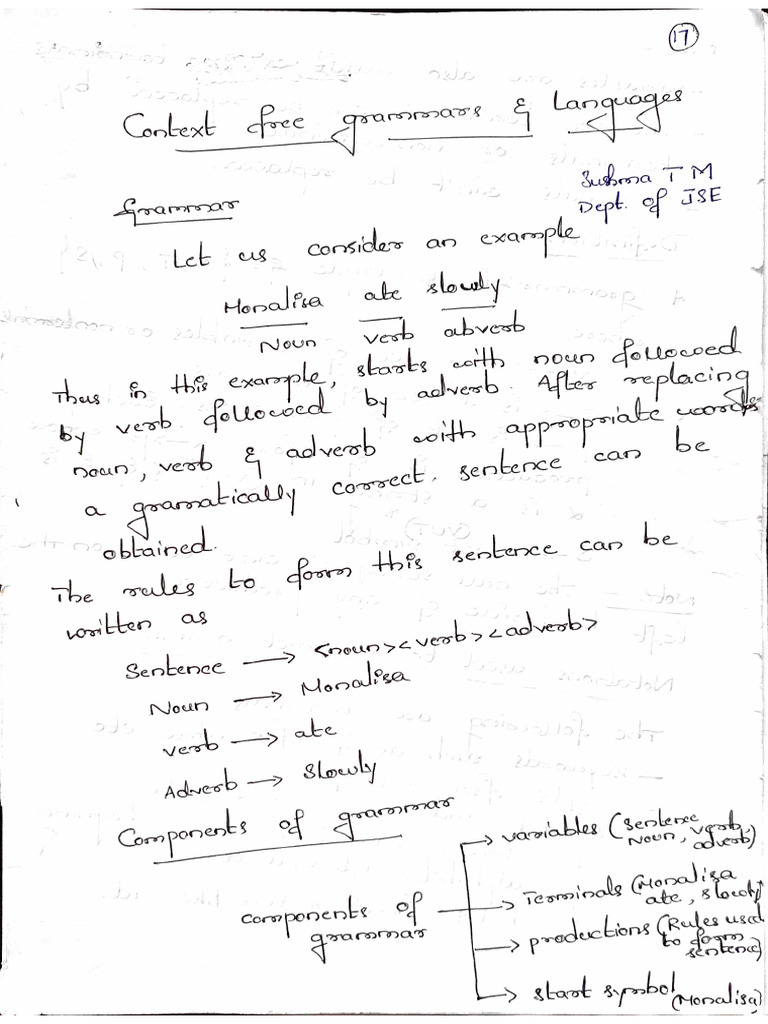 17
Context free grammars & Languages
Sushma T M
Dept. of ISE
Grammar
Let us consider an example
Monalisa ate slowly
Noun verb abverb
Thus in this example, starts with noun followed
by verb followed by adverb. After replacing
noun, verb & adverb with appropriate words
a gramatically correct. sentence can be
obtained.
The rules to form this sentence can be
written as
Sentence → <noun><verb><adverb>
Noun → Monalisa
verb → ate
Adverb → Slowly
Components of grammar
components of grammar
→ variables (Sentence Noun, verb, adverb)
→ Terminals (Monalisa ate, slowly)
→ productions (Rules used to form sentence)
→ start symbol (Monalisa)